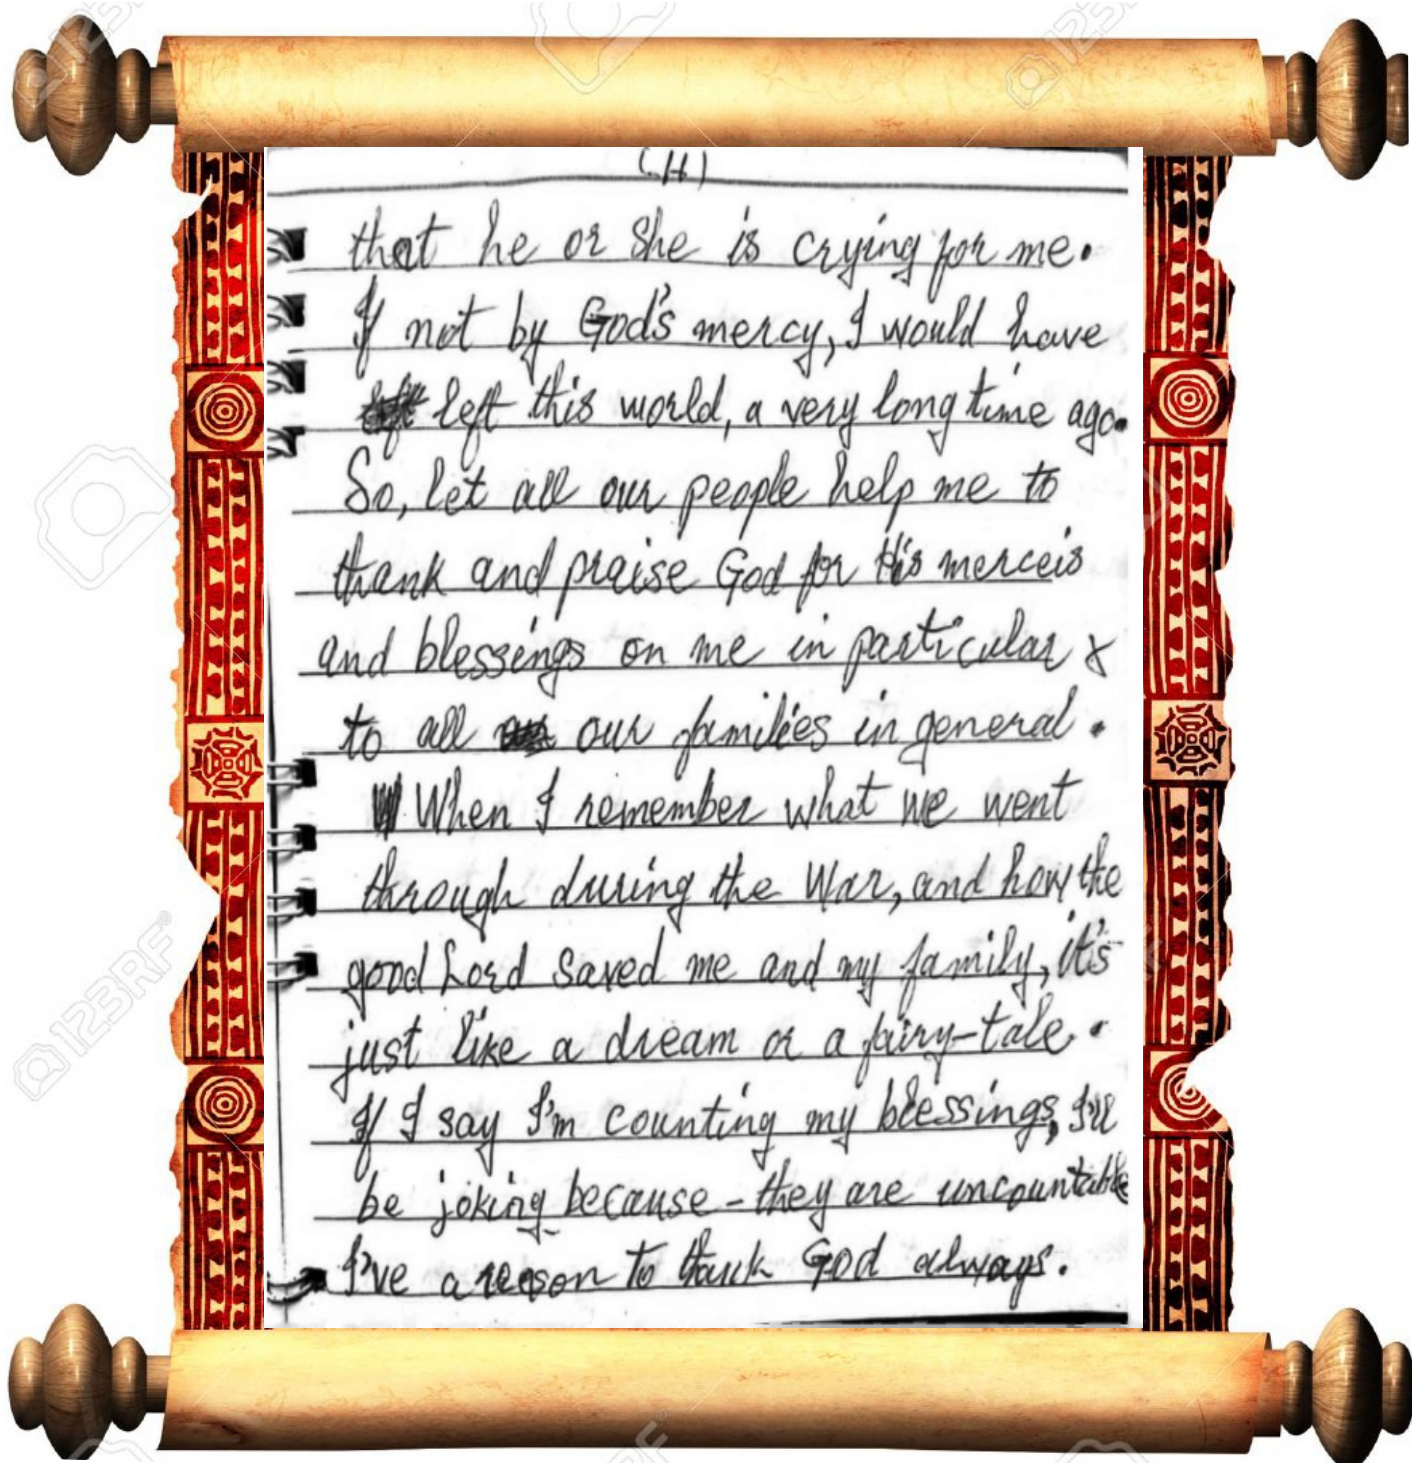 that he or she is crying for me.
If not by God's mercy, I would have
left this world, a very long time ago.
So, let all our people help me to
thank and praise God for His merceis
and blessings on me in particular &
to all our families in general.
When I remember what we went
through during the War, and how the
good Lord saved me and my family, it's
just like a dream or a fairy-tale.
If I say I'm counting my blessings, I'll
be joking because - they are uncountable
I've a reason to thank God always.
123RF